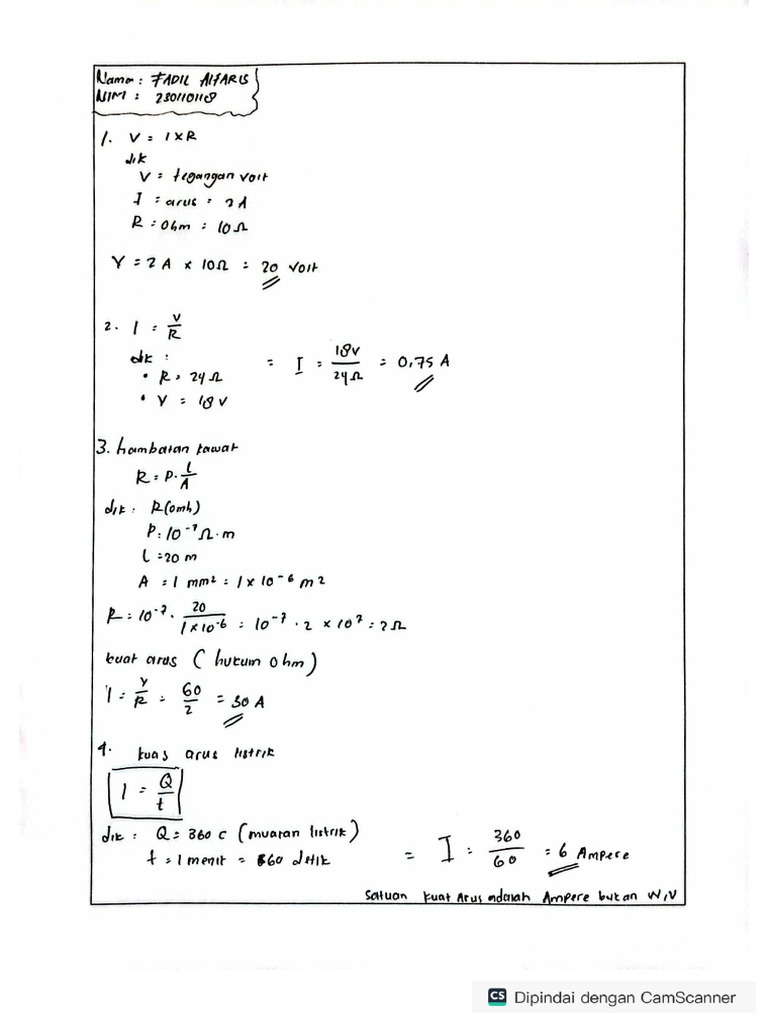 Nama : FADIL ALFARIS
NIM : 2301101118
1. V = I x R
dik
V = tegangan volt
I = arus = 2 A
R = Ohm = 10 Ω
V = 2 A x 10Ω = 20 Volt
2. I = V/R
dik :
• R = 24 Ω
• V = 18 V
= I = 18V/24Ω = 0,75 A
3. hambatan kawat
R = P. L/A
dik : R(omh)
P = 10⁻⁷ Ω.m
L = 20 m
A = 1 mm² = 1 x 10⁻⁶ m²
R = 10⁻⁷ . 20/1 x 10⁻⁶ = 10⁻⁷ . 2 x 10⁷ = 2 Ω
kuat arus ( hukum Ohm )
I = V/R = 60/2 = 30 A
4. kuas arus listrik
I = Q/t
dik : Q = 360 C (muatan listrik)
t = 1 menit = 60 detik
= I = 360/60 = 6 Ampere
Satuan kuat Arus adalah Ampere bukan W,V
CS Dipindai dengan CamScanner